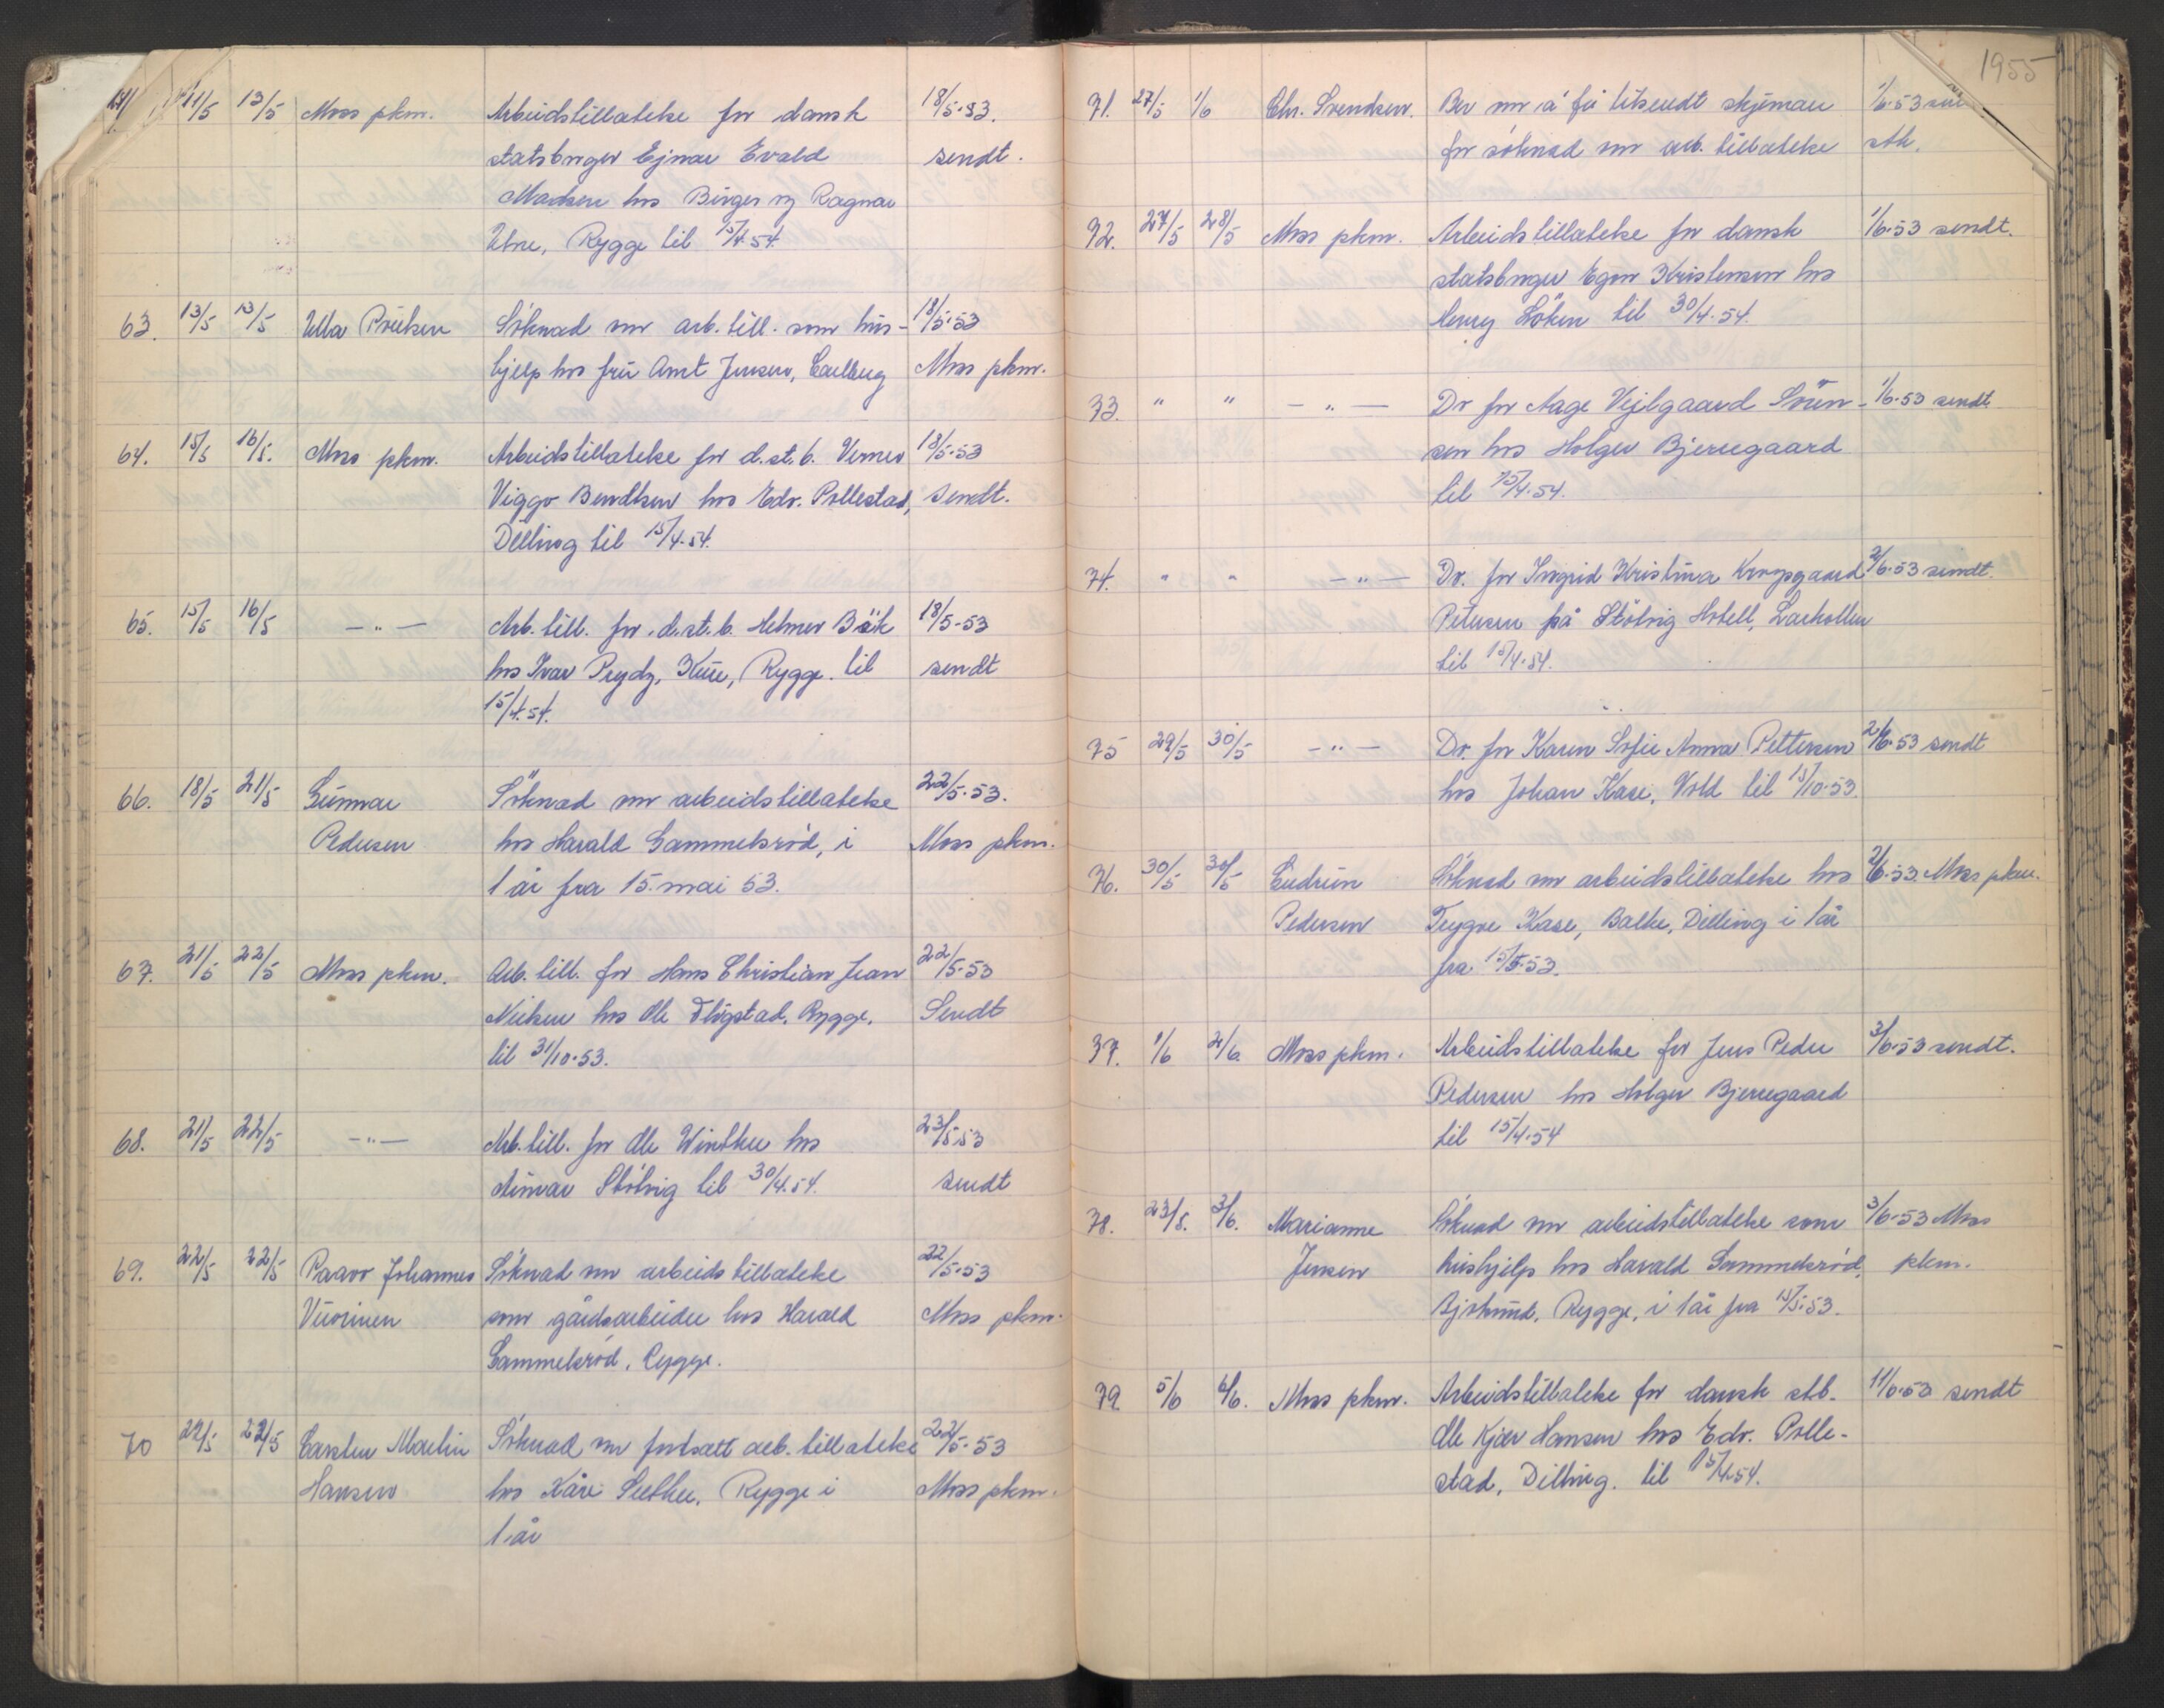 11/5 13/5 Moss pkm. Arbeidstillatelse for dansk 18/5.53.
statsborger Ejnar Evald sendt.
Madsen hos Birger og Ragnar
Rygge til 15/4.54.
63. 13/5 13/5 Ulla Söknad om arb.till. som hus- 18/5.53
hjelp hos fru Amt Jensen, Carlberg Moss pkm.
64. 15/5 16/5. Moss pkm. Arbeidstillatelse for d.st.b. Verner 18/5.53
Viggo Bendtsen hos Edv. Pollestad, sendt.
Dilling til 15/4.54.
65. 15/5 16/5 — " — Arb. till. for d.st.b. Helmer Bäk 18/5-53
hos Ivar Prydz, Kure, Rygge. til sendt
15/4.54.
66. 18/5 21/5 Gunnar Söknad om arbeidstillatelse 22/5.53.
Pedersen hos Harald Gammelsröd, i Moss pkm.
1 år fra 15. mai 53.
67. 21/5 22/5 Moss pkm. Arb. till. for Hans Christian Jean 22/5-53
Nielsen hos Ole Flögstad, Rygge. Sendt
til 31/10.53.
68. 21/5 22/5 — " — Arb. till. for Ole Winther hos 23/5.53
Stölvig til 30/4.54. sendt
69. 22/5 22/5 Paavo Johannes Söknad om arbeidstillatelse 22/5.53
Vuorinen som gårdsarbeider hos Harald Moss pkm.
Gammelsröd, Rygge.
70 22/5 22/5 Carsten Martin Söknad om fortsatt arb. tillatelse 22/5-53
Hansen hos Kåre Rygge i Moss pkm.
1 år
1955
71. 27/5 1/6 Chr. Svendsen. Ber om å få tilsendt skjemaer 1/6.53
for söknad om arb. tillatelse
72. 27/5 28/5 Moss pkm. Arbeidstillatelse for dansk 1/6.53 sendt.
statsborger Egon Kristensen hos
Henry Löken til 30/4.54.
73. " " — " — Do for Aage Vejlgaard Sören- 1/6.53 sendt
sen hos Holger Bjerregaard
til 15/4.54.
74. " " — " — Do. for Ingrid Kristina 2/6.53 sendt.
Petersen på Stölvig Hotell, Larkollen
til 15/4.54.
75 29/5 30/5 — " — Do. for Karen Sofie Anna Pettersen 2/6.53 sendt
hos Johan Kase, Vold til 15/10.53.
76. 30/5 30/5 Gudrun Söknad om arbeidstillatelse hos 2/6.53. Moss pkm.
Pedersen Trygve Kase, Balke, Dilling i 1 år
fra 15/5.53.
77. 1/6 2/6 Moss pkm. Arbeidstillatelse for Jens Peder 3/6.53 sendt.
Pedersen hos Holger Bjerregaard
til 15/4.54
78. 23/5. 3/6. Marianne Söknad om arbeidstillatelse som 3/6.53 Moss
Jensen hushjelp hos Harald Gammelsröd, pkm.
Rygge, i 1 år fra 15/5.53.
79 5/6 6/6. Moss pkm. Arbeidstillatelse for dansk stb. 11/6.53 sendt
Ole Kjær Hansen hos Edv. Polle-
stad, Dilling. til 15/4.54.